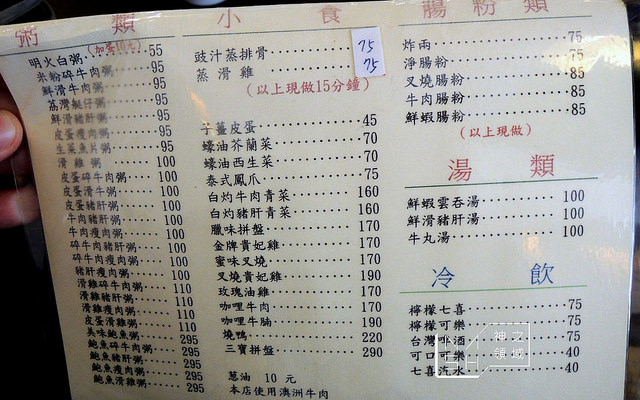 粥類
(加蛋10元)
明火白粥 55
米粉碎牛肉粥 95
鮮滑牛肉粥 95
荔灣艇仔粥 95
鮮滑豬肝粥 95
皮蛋瘦肉粥 95
生菜魚片粥 95
滑雞粥 100
皮蛋碎牛肉粥 100
皮蛋滑牛粥 100
皮蛋豬肝粥 100
牛肉豬肝粥 100
牛肉瘦肉粥 100
碎牛肉豬肝粥 100
碎牛肉瘦肉粥 100
豬肝瘦肉粥 100
滑雞碎牛肉粥 110
滑雞豬肝粥 110
滑雞瘦肉粥 110
皮蛋滑雞粥 110
美味鮑魚粥 295
鮑魚碎牛肉粥 295
鮑魚豬肝粥 295
鮑魚瘦肉粥 295
鮑魚滑雞粥 295
小食
豉汁蒸排骨 75
蒸滑雞 75
(以上現做15分鐘)
子薑皮蛋 45
蠔油芥蘭菜 70
蠔油西生菜 70
泰式鳳爪 75
白灼牛肉青菜 160
白灼豬肝青菜 160
臘味拼盤 170
金牌貴妃雞 170
蜜味叉燒 170
叉燒貴妃雞 190
玫瑰油雞 170
咖哩牛肉 170
咖哩牛腩 190
燒鴨 220
三寶拼盤 290
蔥油 10 元
本店使用澳洲牛肉
腸粉類
炸兩 75
淨腸粉 75
叉燒腸粉 85
牛肉腸粉 85
鮮蝦腸粉 85
(以上現做)
湯類
鮮蝦雲吞湯 100
鮮滑豬肝湯 100
牛丸湯 100
冷飲
檸檬七喜 75
檸檬可樂 75
台灣啤酒 75
可口可樂 40
七喜汽水 40
神之領域